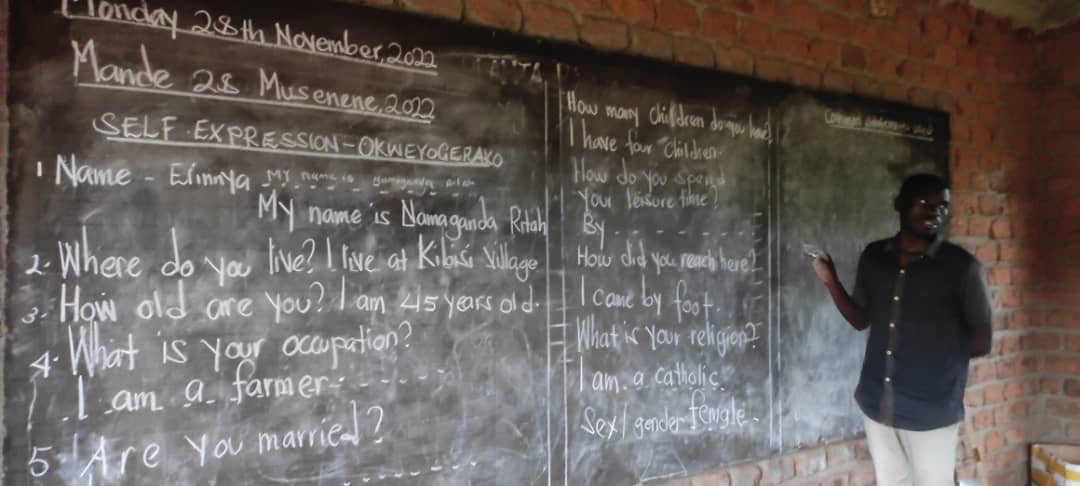 Monday 28th November, 2022
Mande 28 Musenene, 2022
SELF EXPRESSION - OKWEYOGERAKO
1 Name - Erinnya My name is Namaganda Ritah
My name is Namaganda Ritah
2. Where do you live? I live at Kibisi Village
3. How old are you? I am 45 years old.
4. What is your occupation?
I am a farmer - - - - - -
5. Are you married?
- - - - - -
How many children do you have?
I have four children.
How do you spend
Your leisure time?
By - - - - - - - -
How did you reach here?
I came by foot.
What is your religion?
I am a catholic.
Sex/gender female -